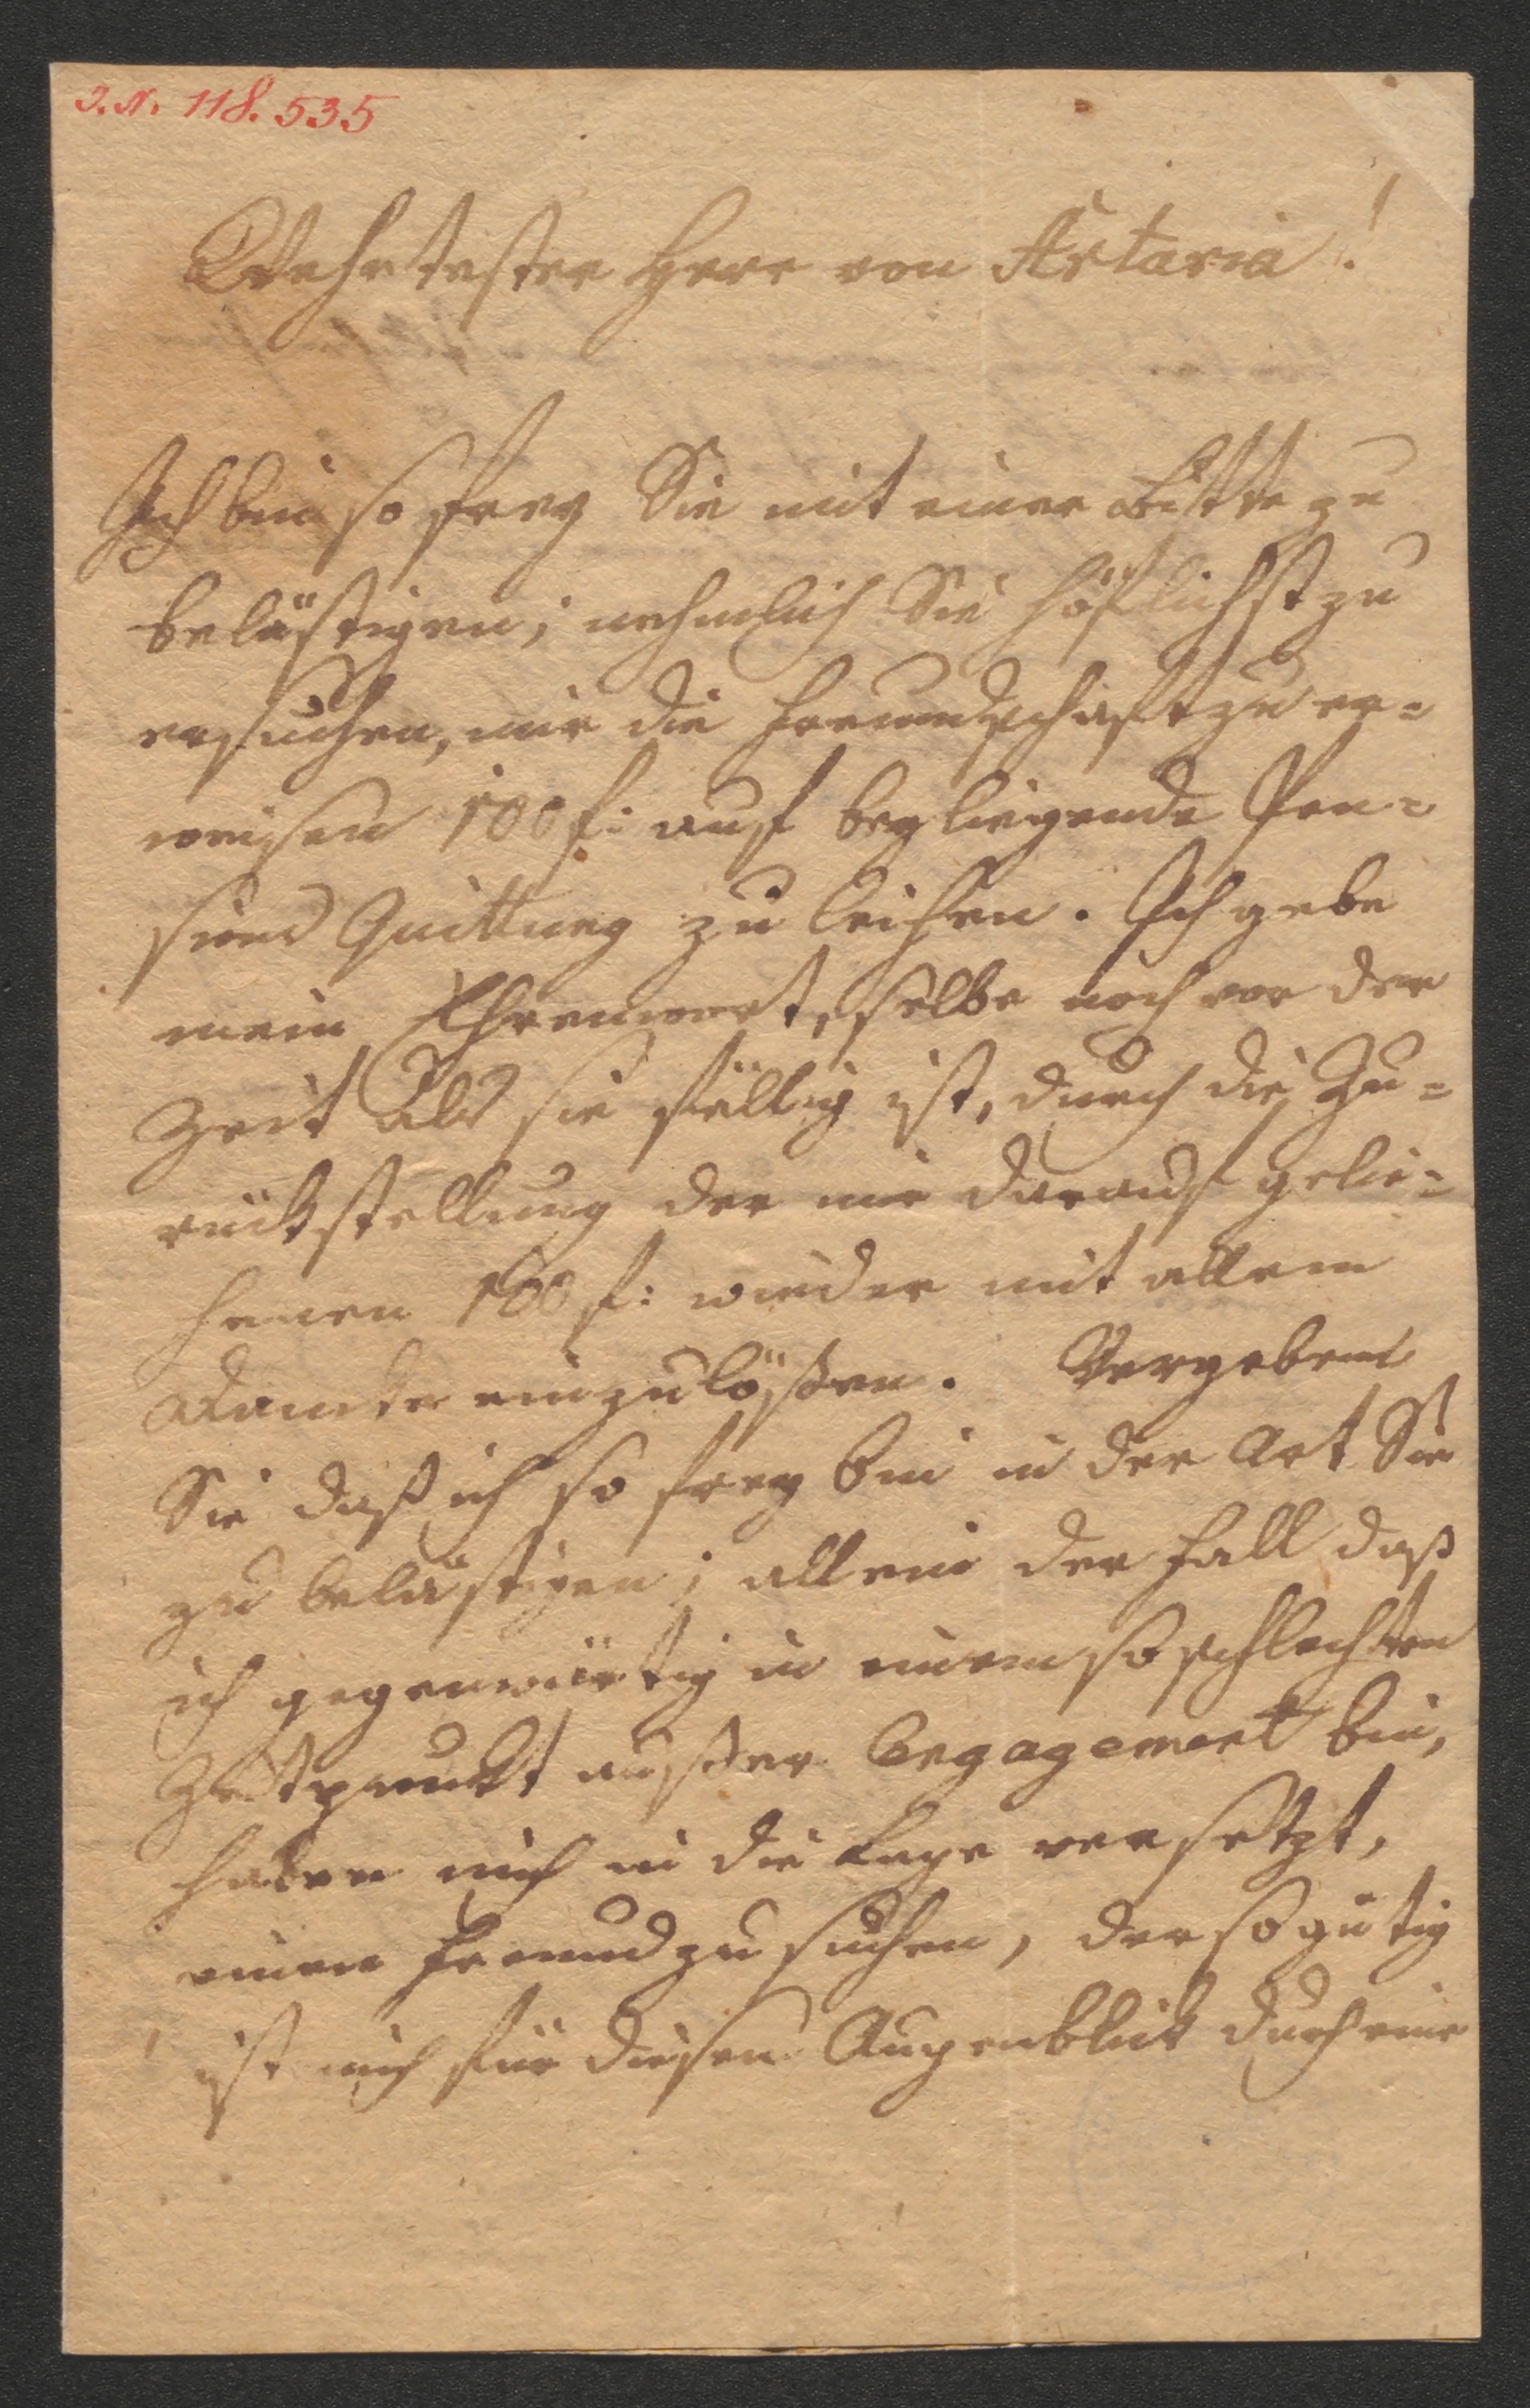 J. N. 118.535
Wehrtester Herr von Artaria!
Ich bin so frey Sie mit einer Bitte zu
belästigen; nehmlich Sie höflichst zu
ersuchen, mir die Freundschaft zu er=
weisen 100 f: auf beyliegende Pen=
sions Quittung zu leihen. Ich gebe
mein Ehrenwort, selbe noch vor der
Zeit als sie fällig ist, durch die Zu=
rückstellung der mir darauf gelie=
henen 100 f: wieder mit allem
Danke einzulößen. Vergeben
Sie daß ich so frey bin in der Art Sie
zu belästigen; allein der Fall daß
ich gegenwärtig in einem so schlechten
Zeitpunkt außer Engagement bin,
haben mich in die Lage versetzt,
einen Freund zu suchen, der so gütig
ist mich für diesen Augenblick durch eine